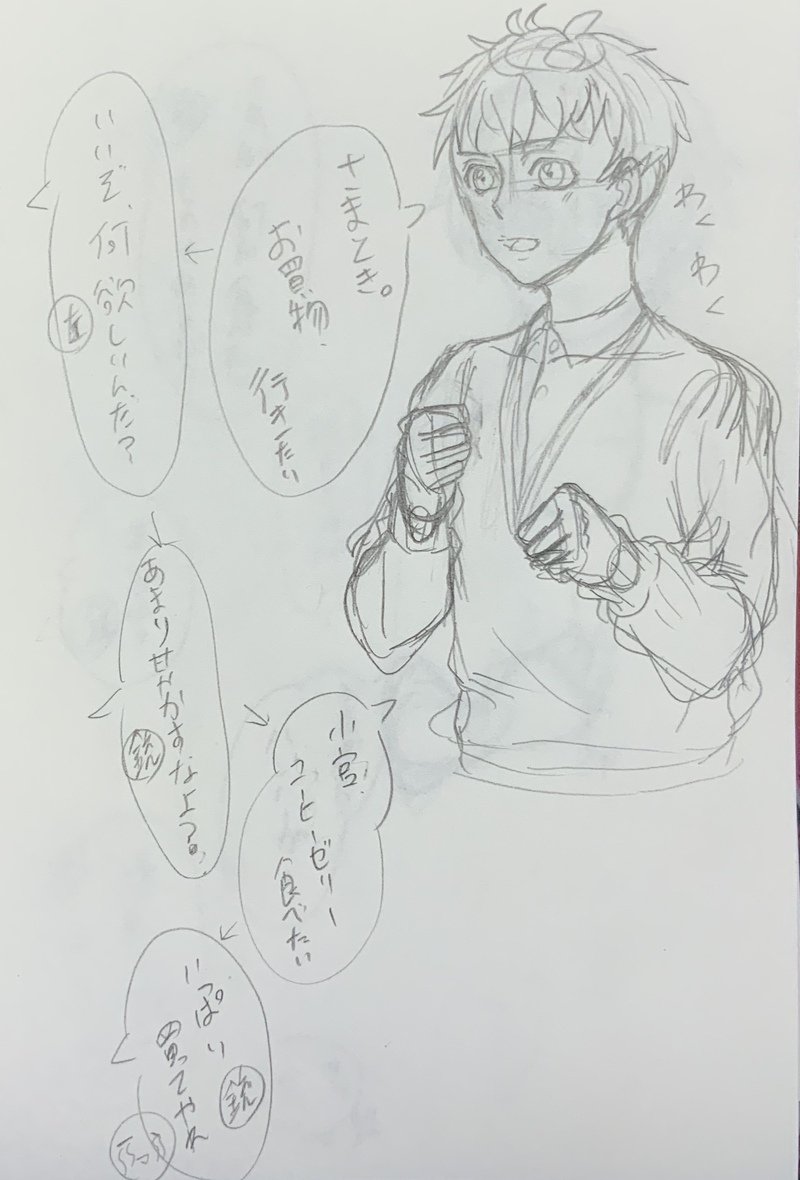 わく
わく
さまとき。
お買物
行きたい
いいぞ、何欲しいんだ?
左
あまりせかすなよ?。
銃
小官、
コーヒーゼリー
食べたい
いっぱい
買ってやれ
銃